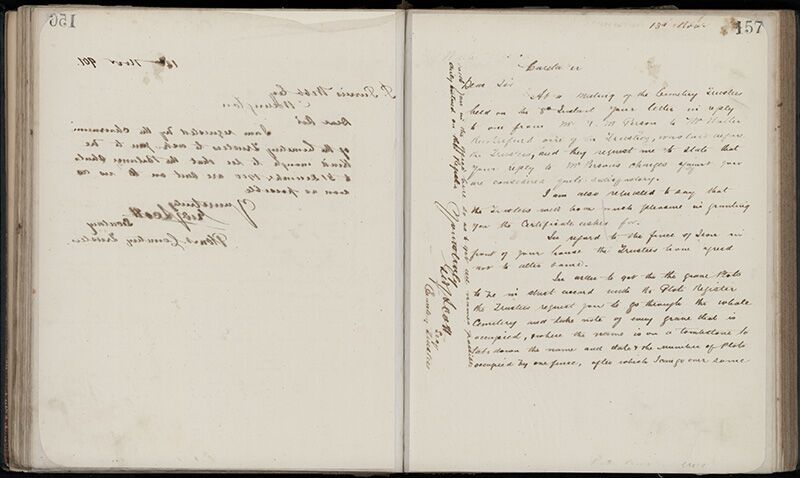 156
Novr 901
Webb Esq
Dear Sir
I am requested by the Chairman
of the Cemetery Trustees to ask you to be
kind enough to see that the Balance Sheets
to 31 December 1900 are sent on to me as
soon as possible
Yours truly
Geo J Scott
Cemetery Trustees
157
13th Nov
Caretaker
Dear Sir
At a meeting of the Cemetery Trustees
held on the 8th Instant your letter in reply
to one from Mr Person to Mr Walter
one of the Trustees, was laid before
the Trustees, and they request me to state that
your reply to Mr Persons charges against you
are considered quite satisfactory.
I am also requested to say that
the Trustees will have much pleasure in granting
you the Certificate asked for.
In regard to the fence of Iron in
front of your house the Trustees have agreed
not to alter same.
In order to get the the grave Plots
to be in strict accord with the Plot Register
the Trustees request you to go through the whole
Cemetery and take note of every grave that is
occupied, & where the name is on a tombstone to
take down the name and date & the number of Plots
occupied by one fence, after which I can go over same
Yours truly
Geo J Scott
Secy
Cemetery Trustees